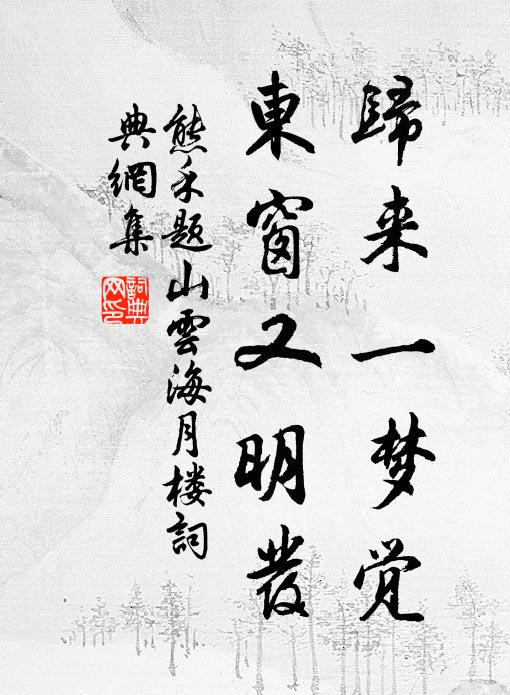 歸来一梦觉
東窗又明发
熊禾题山雲海月楼詞
典網集
詞典网印